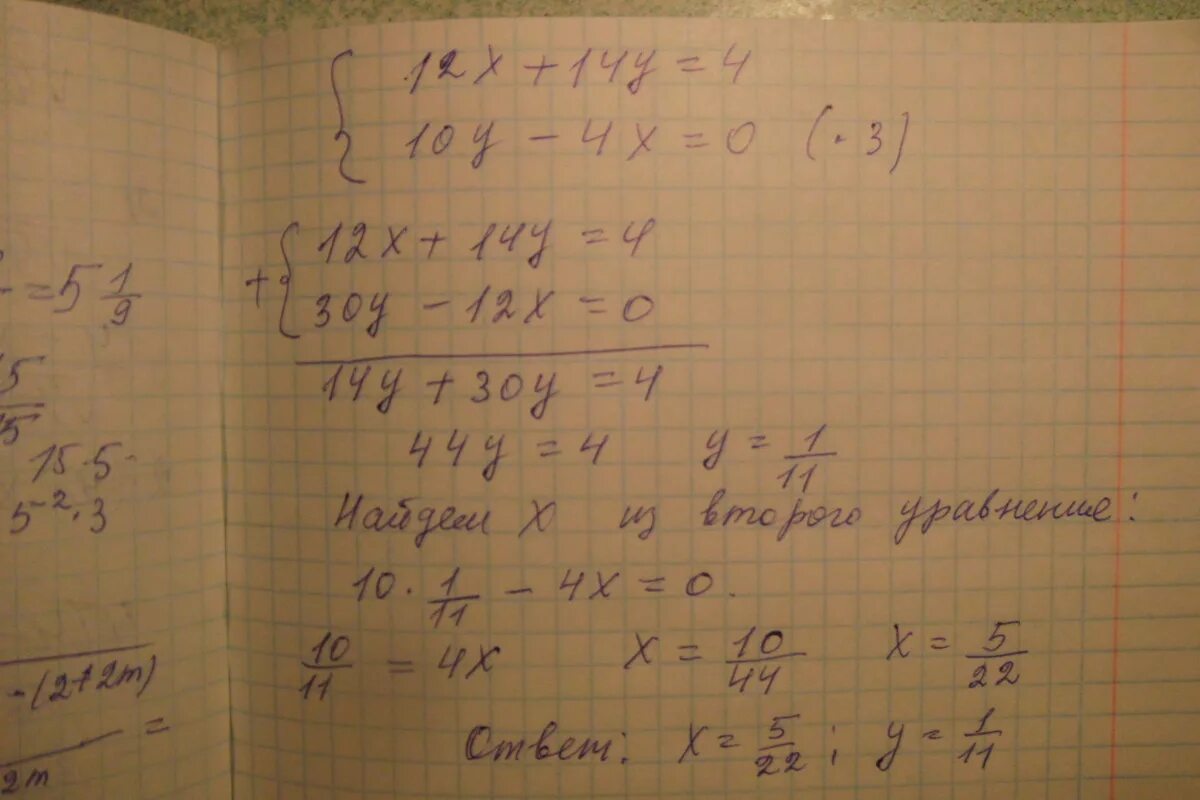 12x + 14y = 4
10y - 4x = 0 (· 3)
12x + 14y = 4
+
30y - 12x = 0
14y + 30y = 4
44y = 4 y = 1/11
Найдем x из второго уравнение:
10 · 1/11 - 4x = 0.
10/11 = 4x x = 10/44 x = 5/22
Ответ: x = 5/22 ; y = 1/11
= 5 1/9
15 · 5
5⁻² · 3
-(2+2m)
=
2m